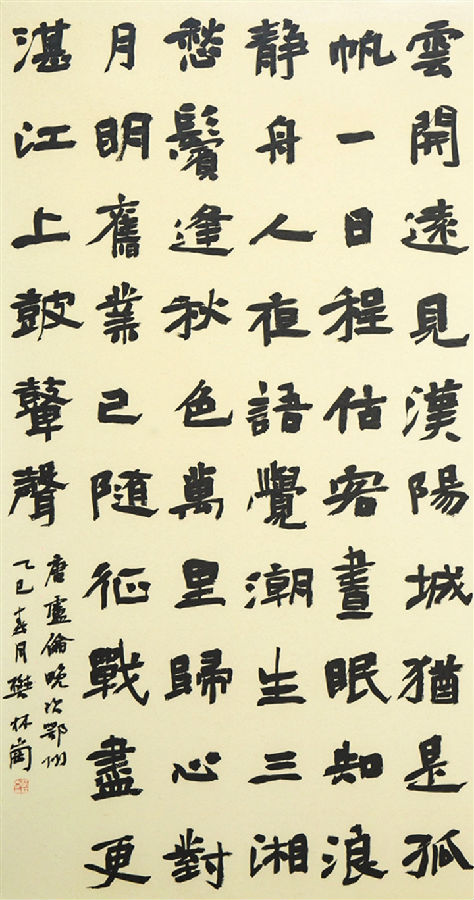 雲開遠見漢陽城猶是孤
帆一日程估客晝眠知浪
静舟人夜語覺潮生三湘
愁鬢逢秋色萬里歸心對
月明舊業已随征戰盡更
湛江上鼓鼙聲
唐盧倫晚次鄂州
乙巳春月樊